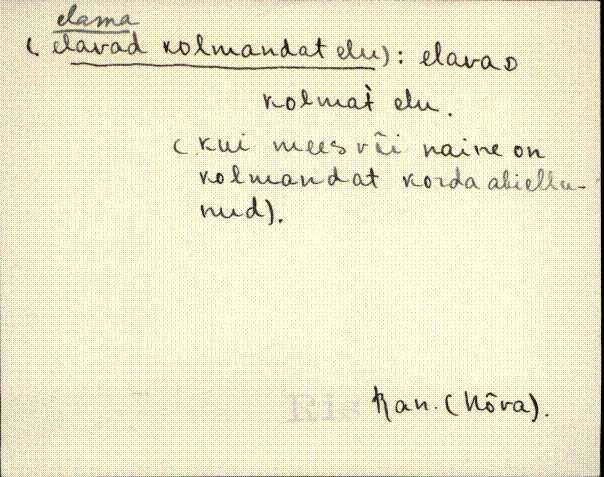 elama
(elavad kolmandat elu): elavaD
kolmat̀ elu.
(kui mees või naine on
kolmandat korda abiellu-
nud).
Ris Ran. (Nõva).